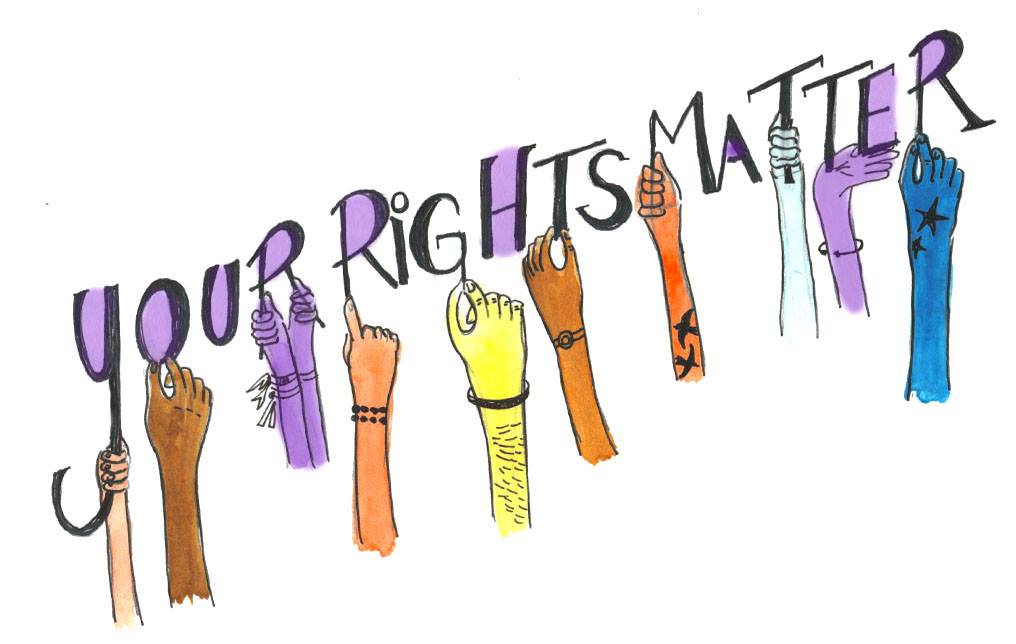 YOUR RiGHTS MATTER